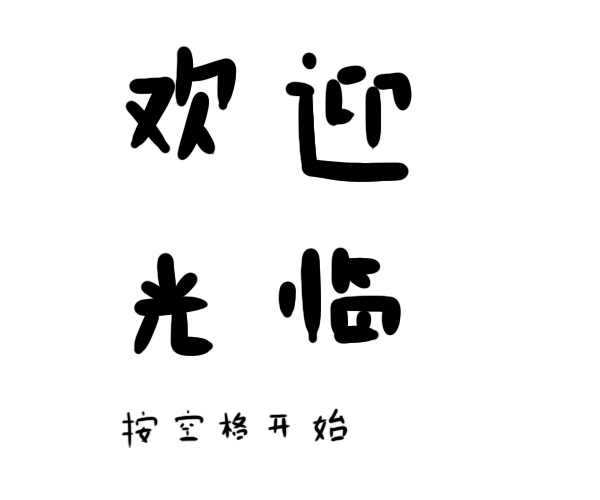 欢迎
光临
按空格开始